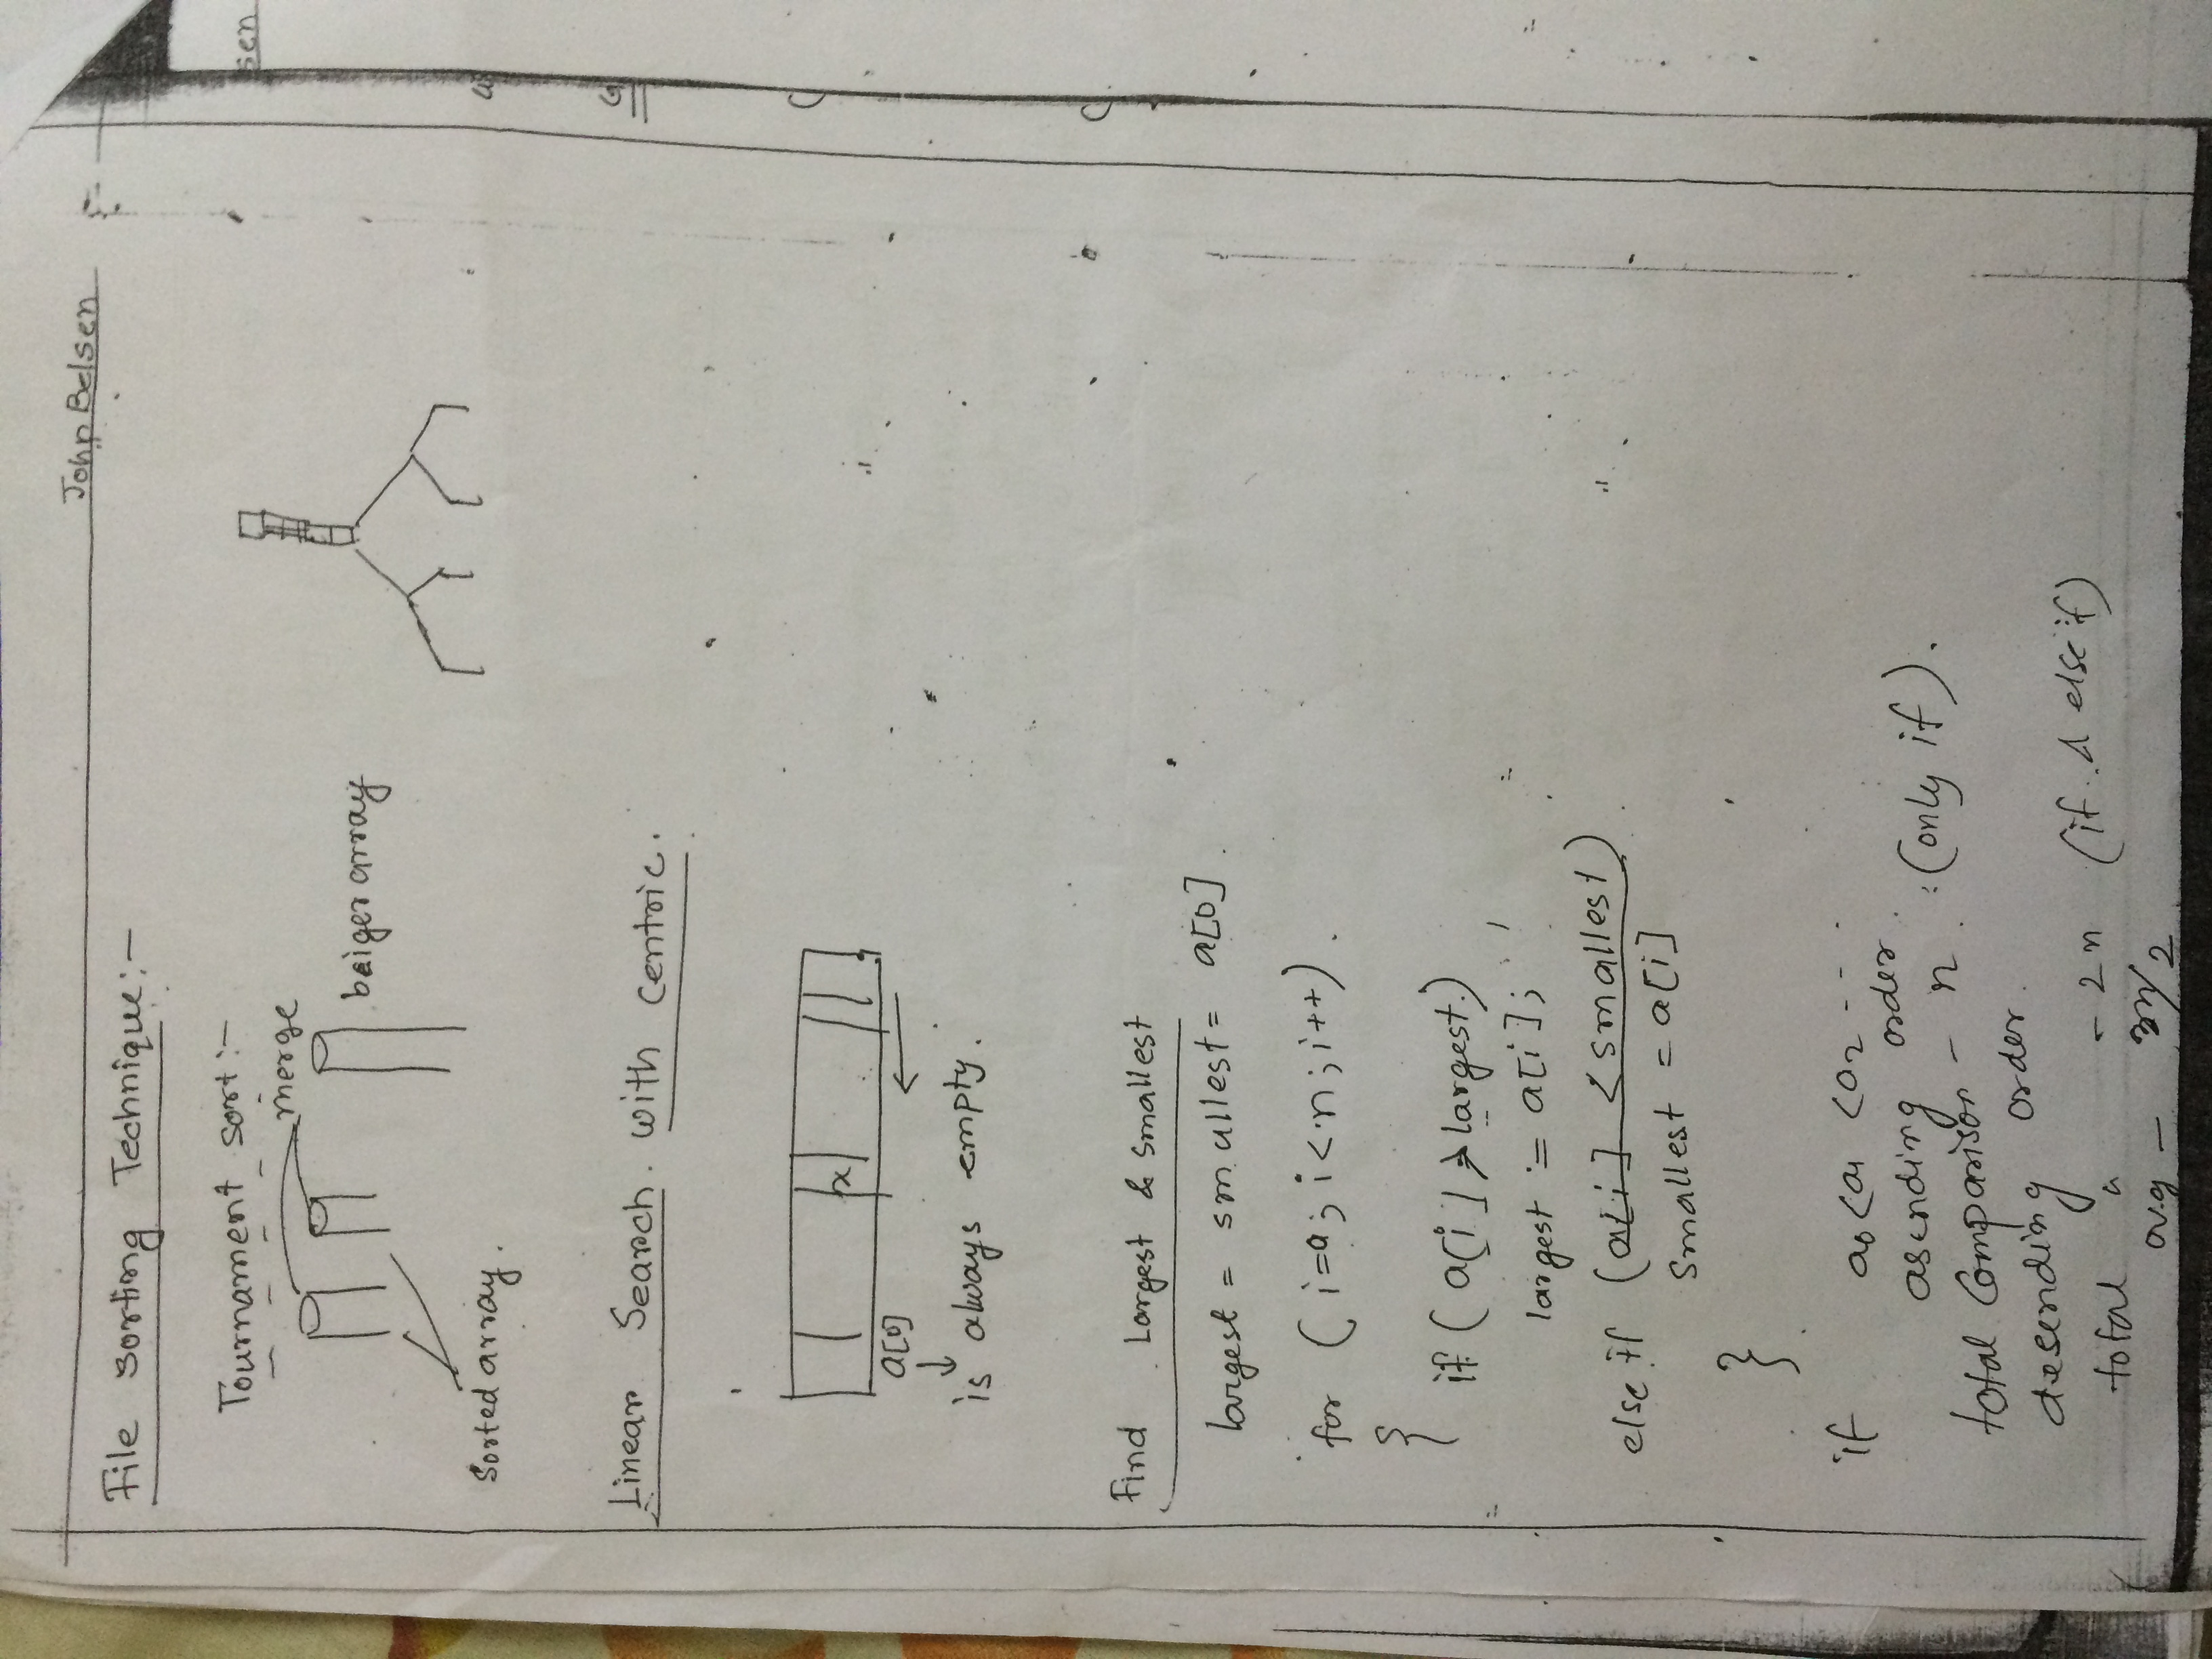 John Belsen
File sorting Technique:-
Tournament sort:-
merge
baiger array
Sorted array.
Linear Search. with Centric.
x
a[0]
is always empty.
Find Largest & smallest
largest = smallest = a[0]
for (i=a; i<n; i++)
{
if (a[i] > largest)
largest = a[i];
else if (a[i] < smallest)
smallest = a[i]
}
if a0<a1<a2---
asending order.
total Comparison - n (only if).
desending order.
total " - 2n (if & else if)
avg - 3n/2
sen